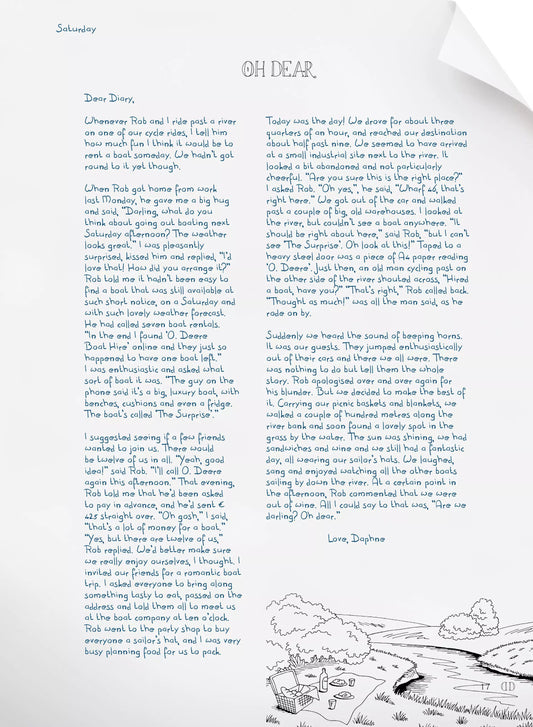 Saturday
OH DEAR
Dear Diary,
Whenever Rob and I ride past a river
on one of our cycle rides, I tell him
how much fun I think it would be to
rent a boat someday. We hadn't got
round to it yet though.
When Rob got home from work
last Monday, he gave me a big hug
and said, "Darling, what do you
think about going out boating next
Saturday afternoon? The weather
looks great." I was pleasantly
surprised, kissed him and replied, "I'd
love that! How did you arrange it?"
Rob told me it hadn't been easy to
find a boat that was still available at
such short notice, on a Saturday and
with such lovely weather forecast.
He had called seven boat rentals.
"In the end I found 'O. Deere
Boat Hire' online and they just so
happened to have one boat left."
I was enthusiastic and asked what
sort of boat it was. "The guy on the
phone said it's a big, luxury boat, with
benches, cushions and even a fridge.
The boat's called 'The Surprise'."
I suggested seeing if a few friends
wanted to join us. There would
be twelve of us in all. "Yeah, good
idea!" said Rob. "I'll call O. Deere
again this afternoon." That evening,
Rob told me that he'd been asked
to pay in advance, and he'd sent €
425 straight over. "Oh gosh," I said,
"that's a lot of money for a boat."
"Yes, but there are twelve of us,"
Rob replied. We'd better make sure
we really enjoy ourselves, I thought. I
invited our friends for a romantic boat
trip. I asked everyone to bring along
something tasty to eat, passed on the
address and told them all to meet us
at the boat company at ten o'clock.
Rob went to the party shop to buy
everyone a sailor's hat, and I was very
busy planning food for us to pack.
Today was the day! We drove for about three
quarters of an hour, and reached our destination
about half past nine. We seemed to have arrived
at a small industrial site next to the river. It
looked a bit abandoned and not particularly
cheerful. "Are you sure this is the right place?"
I asked Rob. "Oh yes,", he said, "Wharf 46, that's
right here." We got out of the car and walked
past a couple of big, old warehouses. I looked at
the river, but couldn't see a boat anywhere. "It
should be right about here," said Rob, "but I can't
see 'The Surprise'. Oh look at this!" Taped to a
heavy steel door was a piece of A4 paper reading
'O. Deere'. Just then, an old man cycling past on
the other side of the river shouted across, "Hired
a boat, have you?" "That's right," Rob called back.
"Thought as much!" was all the man said, as he
rode on by.
Suddenly we heard the sound of beeping horns.
It was our guests. They jumped enthusiastically
out of their cars and there we all were. There
was nothing to do but tell them the whole
story. Rob apologised over and over again for
his blunder. But we decided to make the best of
it. Carrying our picnic baskets and blankets, we
walked a couple of hundred metres along the
river bank and soon found a lovely spot in the
grass by the water. The sun was shining, we had
sandwiches and wine and we still had a fantastic
day, all wearing our sailor's hats. We laughed,
sang and enjoyed watching all the other boats
sailing by down the river. At a certain point in
the afternoon, Rob commented that we were
out of wine. All I could say to that was, "Are we
darling? Oh dear."
Love, Daphne
17